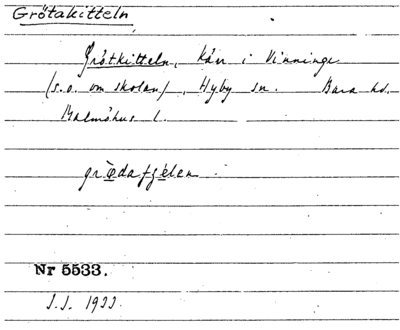 Grötakitteln
Grötkitteln, kärr i Vinninge
(s.o. om skolan), Hyby sn. Bara hd.
Malmöhus l.
Nr 5533.
1933.